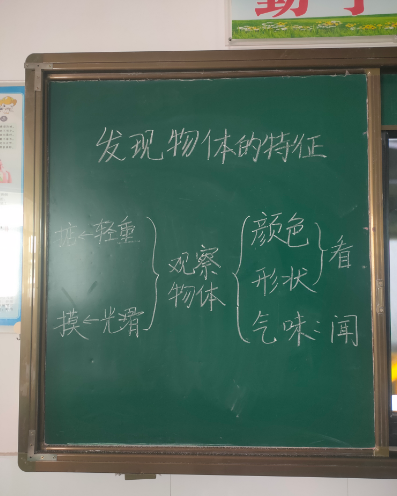 发现物体的特征
掂←轻重
摸←光滑
观察
物体
颜色
形状
看
气味:闻